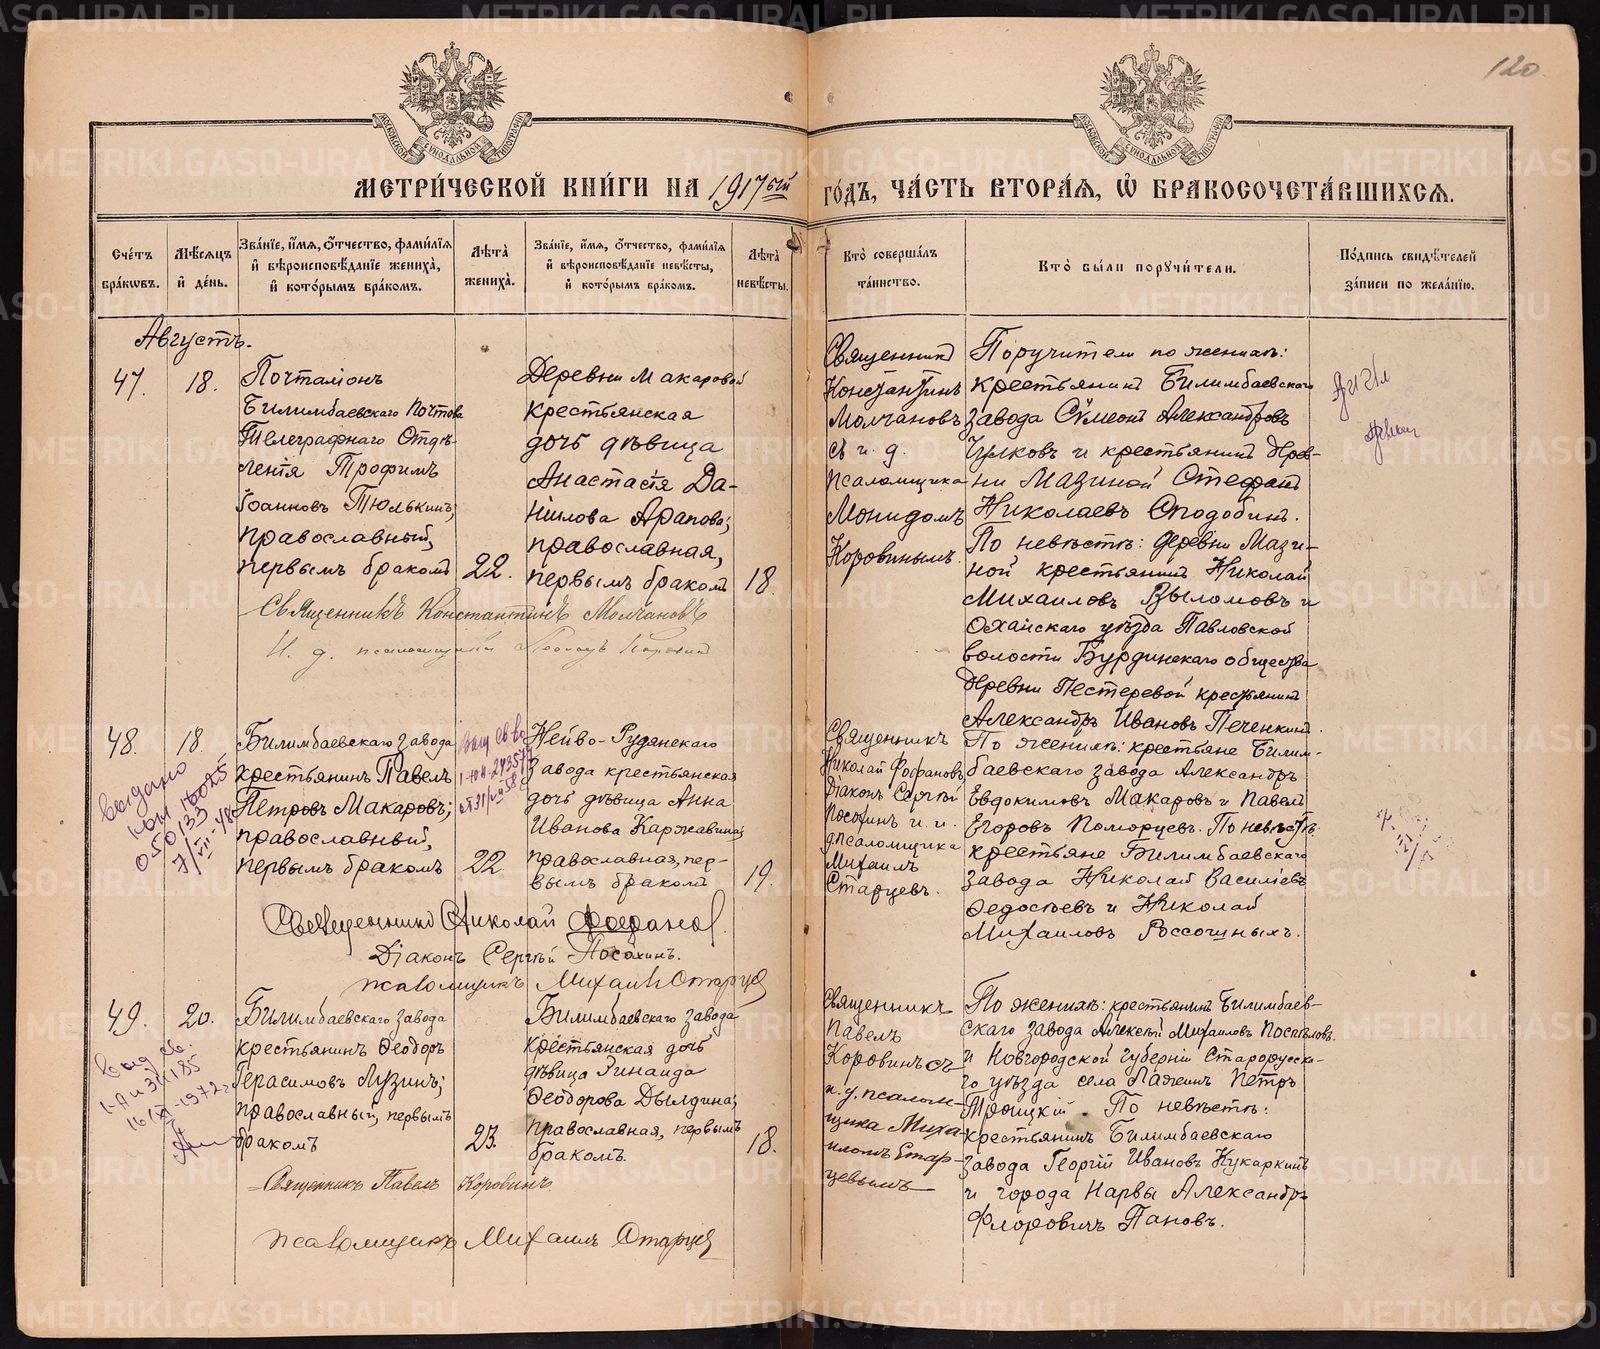 120
МОСКОВСКОЙ СѴНОДАЛЬНОЙ ТИПОГРАФІИ
МОСКОВСКОЙ СѴНОДАЛЬНОЙ ТИПОГРАФІИ
МЕТРИ́ЧЕСКОЙ КНИ́ГИ НА 1917ый ГО́ДЪ, ЧА́СТЬ ВТОРА́Ѧ, Ѽ БРАКОСОЧЕТА́ВШИХСѦ.
Сче́тъ бра́кѡвъ.
Мѣ́сѧцъ и́ де́нь.
Зва́нїе, и́мѧ, ѻ́тчество, фами́лїѧ и́ вѣроисповѣ́данїе жениха̀, и́ кото́рымъ бра́комъ.
Лѣта̀ жениха̀.
Зва́нїе, и́мѧ, ѻ́тчество, фами́лїѧ и́ вѣроисповѣ́данїе невѣ́сты, и́ кото́рымъ бра́комъ.
Лѣта̀ невѣ́сты.
Кто̀ соверша́лъ та́инство.
Кто̀ бы́ли поручи́тели.
По́дпись свидѣ́телей за́писи по жела́нїю.
Августъ.
47.
18.
Почталіонъ
Билимбаевскаго Почтово
Телеграфнаго Отдѣ-
ленія Трофимъ
Іоанновъ Тюлькинъ;
православный,
первымъ бракомъ
22.
Деревни Макаровой
крестьянская
дочь дѣвица
Анастасія Да-
нилова Арапова;
православная,
первымъ бракомъ
18.
Священникъ
Константинъ
Молчановъ
съ и. д.
псаломщика
Коровинымъ.
Поручители по женихѣ:
крестьянинъ Билимбаевскаго
завода Сѵмеонъ Александровъ
Цулковъ и крестьянинъ дерев-
ни Мазиной Стефанъ
Николаевъ Сподобинъ.
По невѣстѣ: деревни Мази-
ной крестьянинъ Николай
Михаиловъ Выломовъ и
Оханскаго уѣзда Павловской
волости Бурдинскаго общества
деревни Пестеревой крестьянинъ
Александръ Ивановъ Печенкинъ.
Священникъ Константинъ Молчановъ
И. д. псаломщика
48.
18.
Билимбаевскаго завода
крестьянинъ Павелъ
Петровъ Макаровъ;
православный,
первымъ бракомъ
22.
Нейво-Рудянскаго
завода крестьянская
дочь дѣвица Анна
Иванова Каржавина;
православная, пер-
вымъ бракомъ
19.
Священникъ
Николай Фофановъ,
Діаконъ Сергѣй
Посохинъ и и.
д. псаломщика
Михаилъ
Старцевъ.
По женихѣ: крестьяне Билим-
баевскаго завода Александръ
Евдокимовъ Макаровъ и Павелъ
Егоровъ Поморцевъ. По невѣстѣ:
крестьяне Билимбаевскаго
завода Николай Василіевъ
Ѳедосѣевъ и Николай
Михаиловъ Россошныхъ.
выдано
050133
Священникъ Николай Фофановъ.
Діаконъ Сергѣй Посохинъ.
псаломщикъ Михаилъ Старцев
49.
20.
Билимбаевскаго завода
крестьянинъ Ѳеодоръ
Герасимовъ Лузинъ;
православный, первымъ
бракомъ
23.
Билимбаевскаго завода
крестьянская дочь
дѣвица Зинаида
Ѳеодорова Дылдина;
православная, первымъ
бракомъ.
18.
Священникъ
Павелъ
Коровинъ съ
и. д. псалом-
щика Миха-
иломъ Стар-
цевымъ
По женихѣ: крестьянинъ Билимбаев-
скаго завода Алексѣй Михаиловъ Поспѣловъ
и Новгородской губерніи Старорусска-
го уѣзда села Лажинъ Петръ
Троицкій. По невѣстѣ:
крестьянинъ Билимбаевскаго
завода Георгій Ивановъ Кукаркинъ
и города Нарвы Александръ
Флоровичъ Пановъ.
Священникъ Павелъ Коровинъ
псаломщикъ Михаилъ Старцев
METRIKI.GASO-URAL.RU